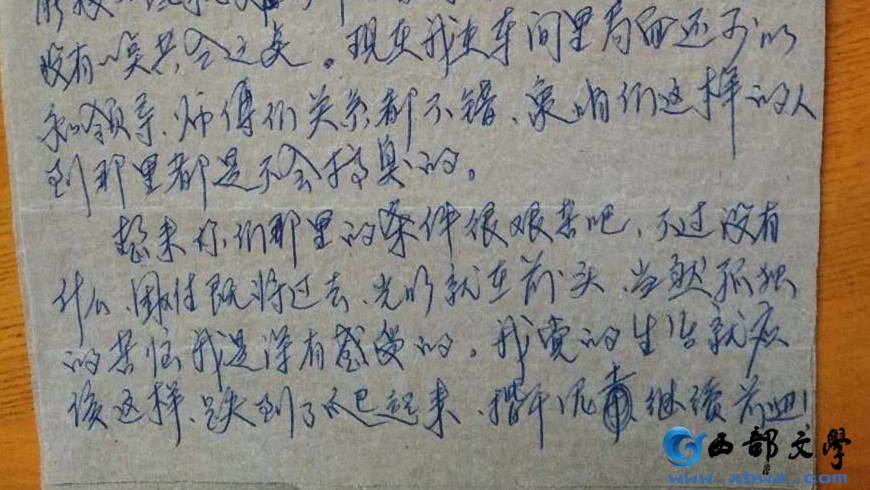 没有一点共同之处。现在我在车间里局面还可以
和领导、师傅们关系都不错、象咱们这样的人
到那里都是不会搞臭的。
想来你们那里的条件很艰苦吧、不过没有
什么、困难既将过去、光明就在前头、当然孤独
的苦恼我是深有感受的。我觉的生活就应
该这样、跌到了爬起来、擦干泥 继续前进!
西部文学
www.xbwx.com